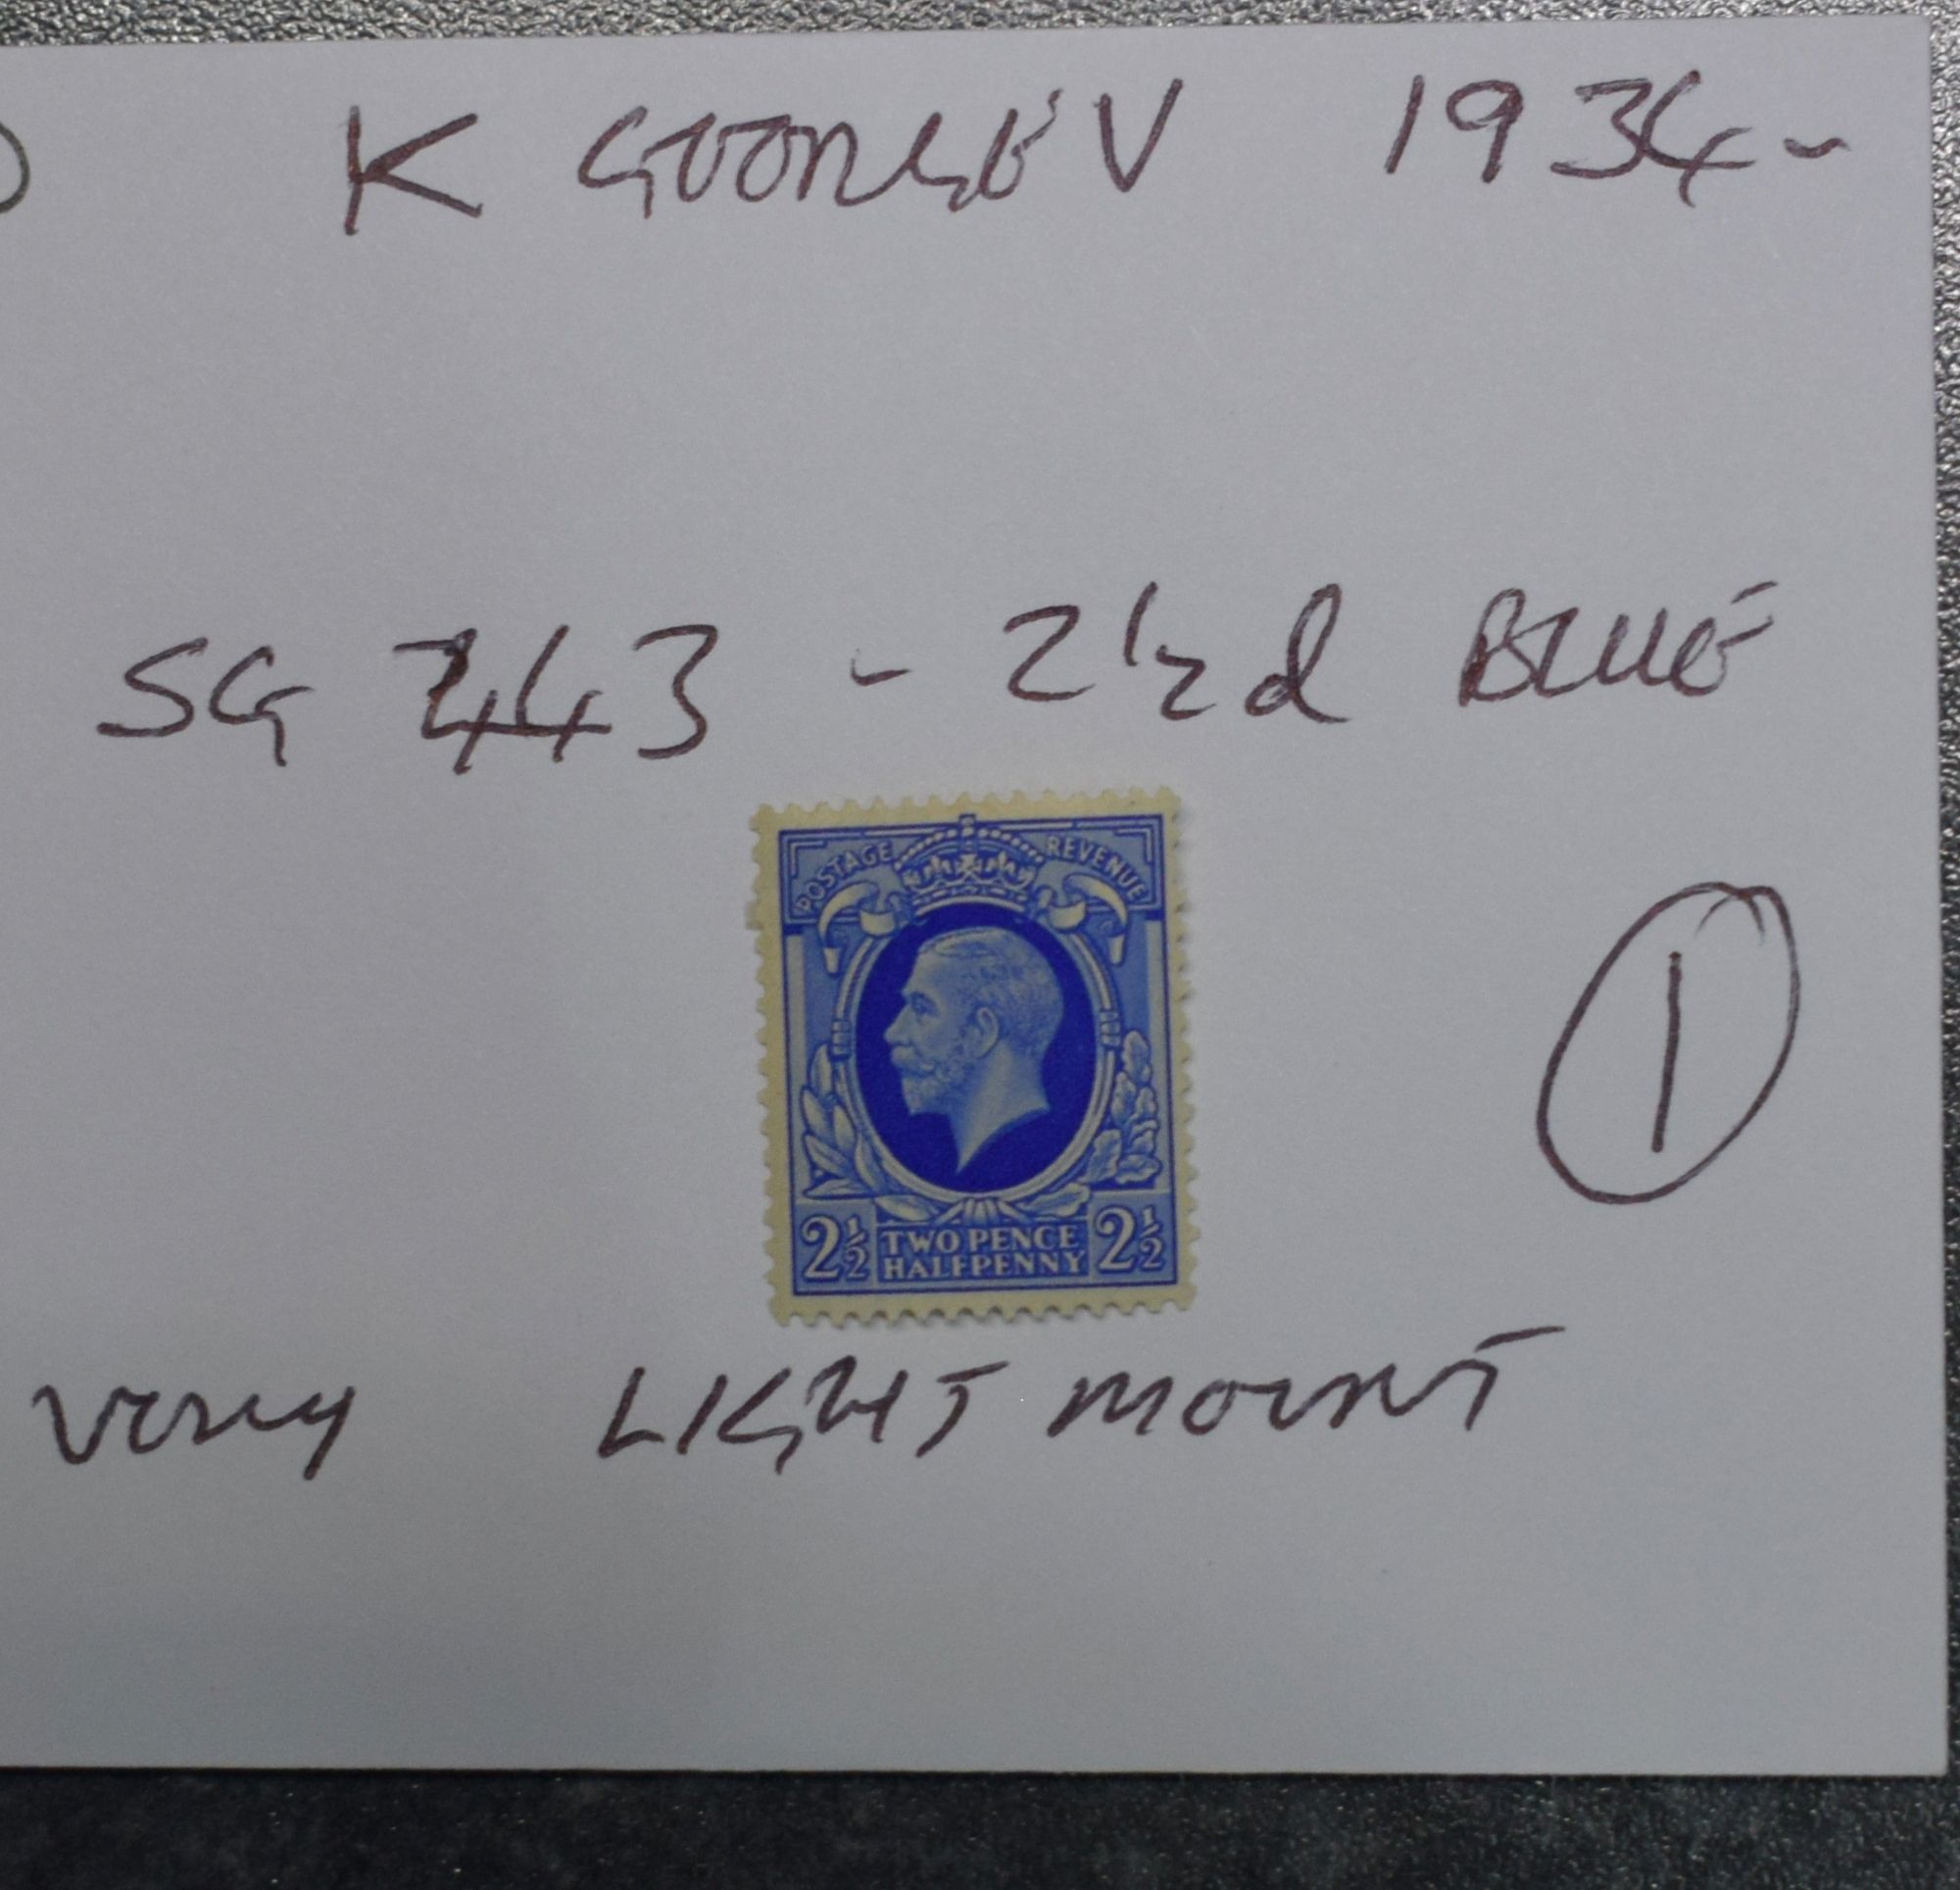 K GEORGE V 1934-
SG 443 - 2½d BLUE
POSTAGE REVENUE
1
2½ TWO PENCE HALFPENNY 2½
VERY LIGHT MOUNT